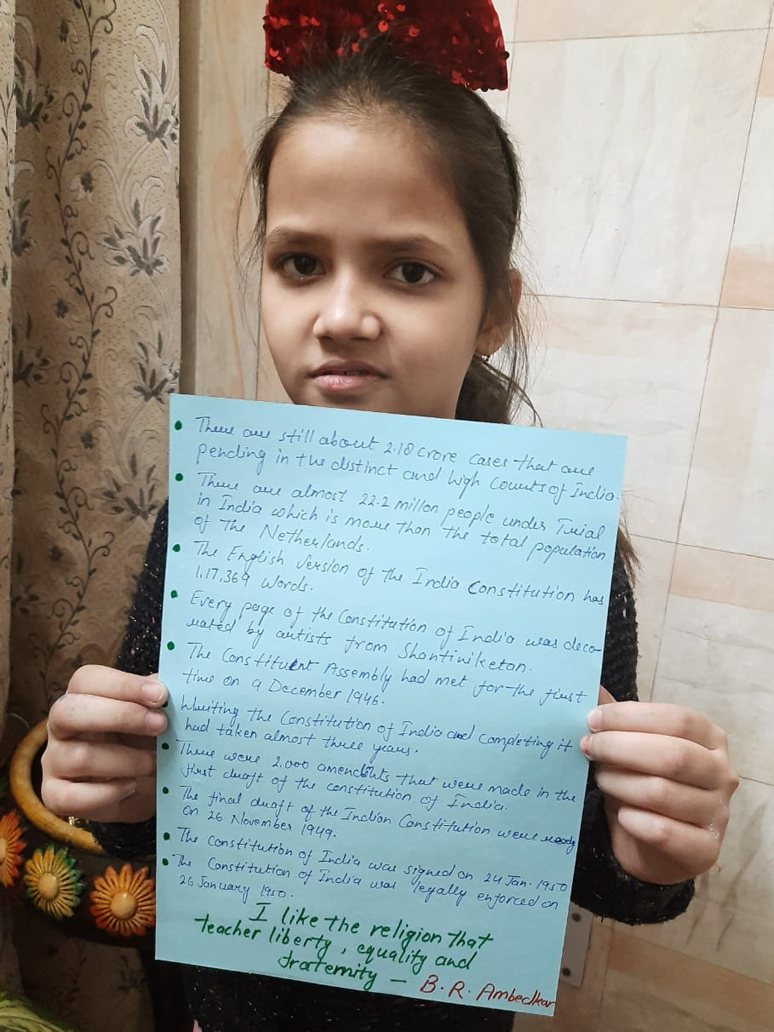 There are still about 2.18 crore cases that are
pending in the distinct and high Courts of India.
There are almost 22.2 millon people under Turial
in India which is more than the total population
of The Netherlands.
The English version of the India Constitution has
1,17,369 words.
Every page of the Constitution of India was deco-
rated by artists from Shantiniketan.
The Constituent Assembly had met for the first
time on 9 December 1946.
Writing the Constitution of India and completing it
had taken almost three years.
There were 2,000 amendents that were made in the
first draft of the constitution of India.
The final draft of the Indian Constitution were ready
on 26 November 1949.
The constitution of India was signed on 24 Jan. 1950
The Constitution of India was legally enforced on
26 January 1950.
I like the religion that
teacher liberty, equality and
fraternity - B.R. Ambedkar